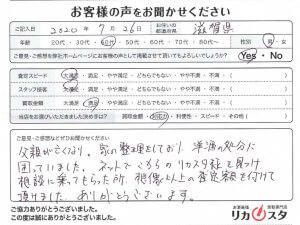 お客様の声をお聞かせください
ご記入日 2020年7月26日 お住いの都道府県 滋賀県
年齢 20代・30代・40代・50代・60代・70代・80代~ 性別 男・女
ご意見・ご感想などをお客様の声としてホームページに掲載させて頂いてもよろしいでしょうか? Yes・No
査定スピード 大満足・満足・やや満足・どちらでもない・やや不満・不満
スタッフ接客 大満足・満足・やや満足・どちらでもない・やや不満・不満
買取金額 大満足・満足・やや満足・どちらでもない・やや不満・不満
当店をお選びいただきました決め手は? 買取金額・対応力・利便性・スピード・その他( )
ご意見・ご感想などぜひお聞かせください。
父親が亡くなり、家の整理をしており、洋酒の処分に
困っていました。ネットでこちらのリカスタ証を見つけ
相談に乗ってもらった所、想像以上の査定額を付けて
頂けました。ありがとうございます。
ご協力ありがとうございました。
この度は誠にありがとうございました。
お酒高価買取専門店
リカスタ